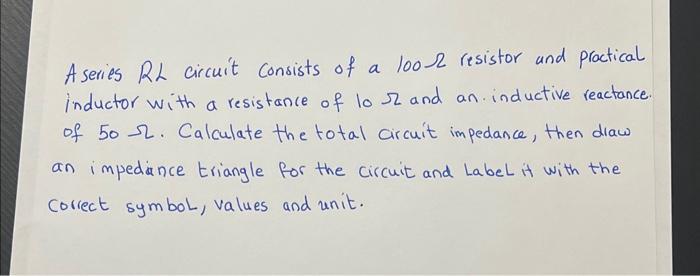 A series RL circuit consists of a 100Ω resistor and practical
inductor with a resistance of 10 Ω and an inductive reactance.
of 50 Ω. Calculate the total circuit impedance, then draw
an impedance triangle for the circuit and Label it with the
correct symbol, values and unit.